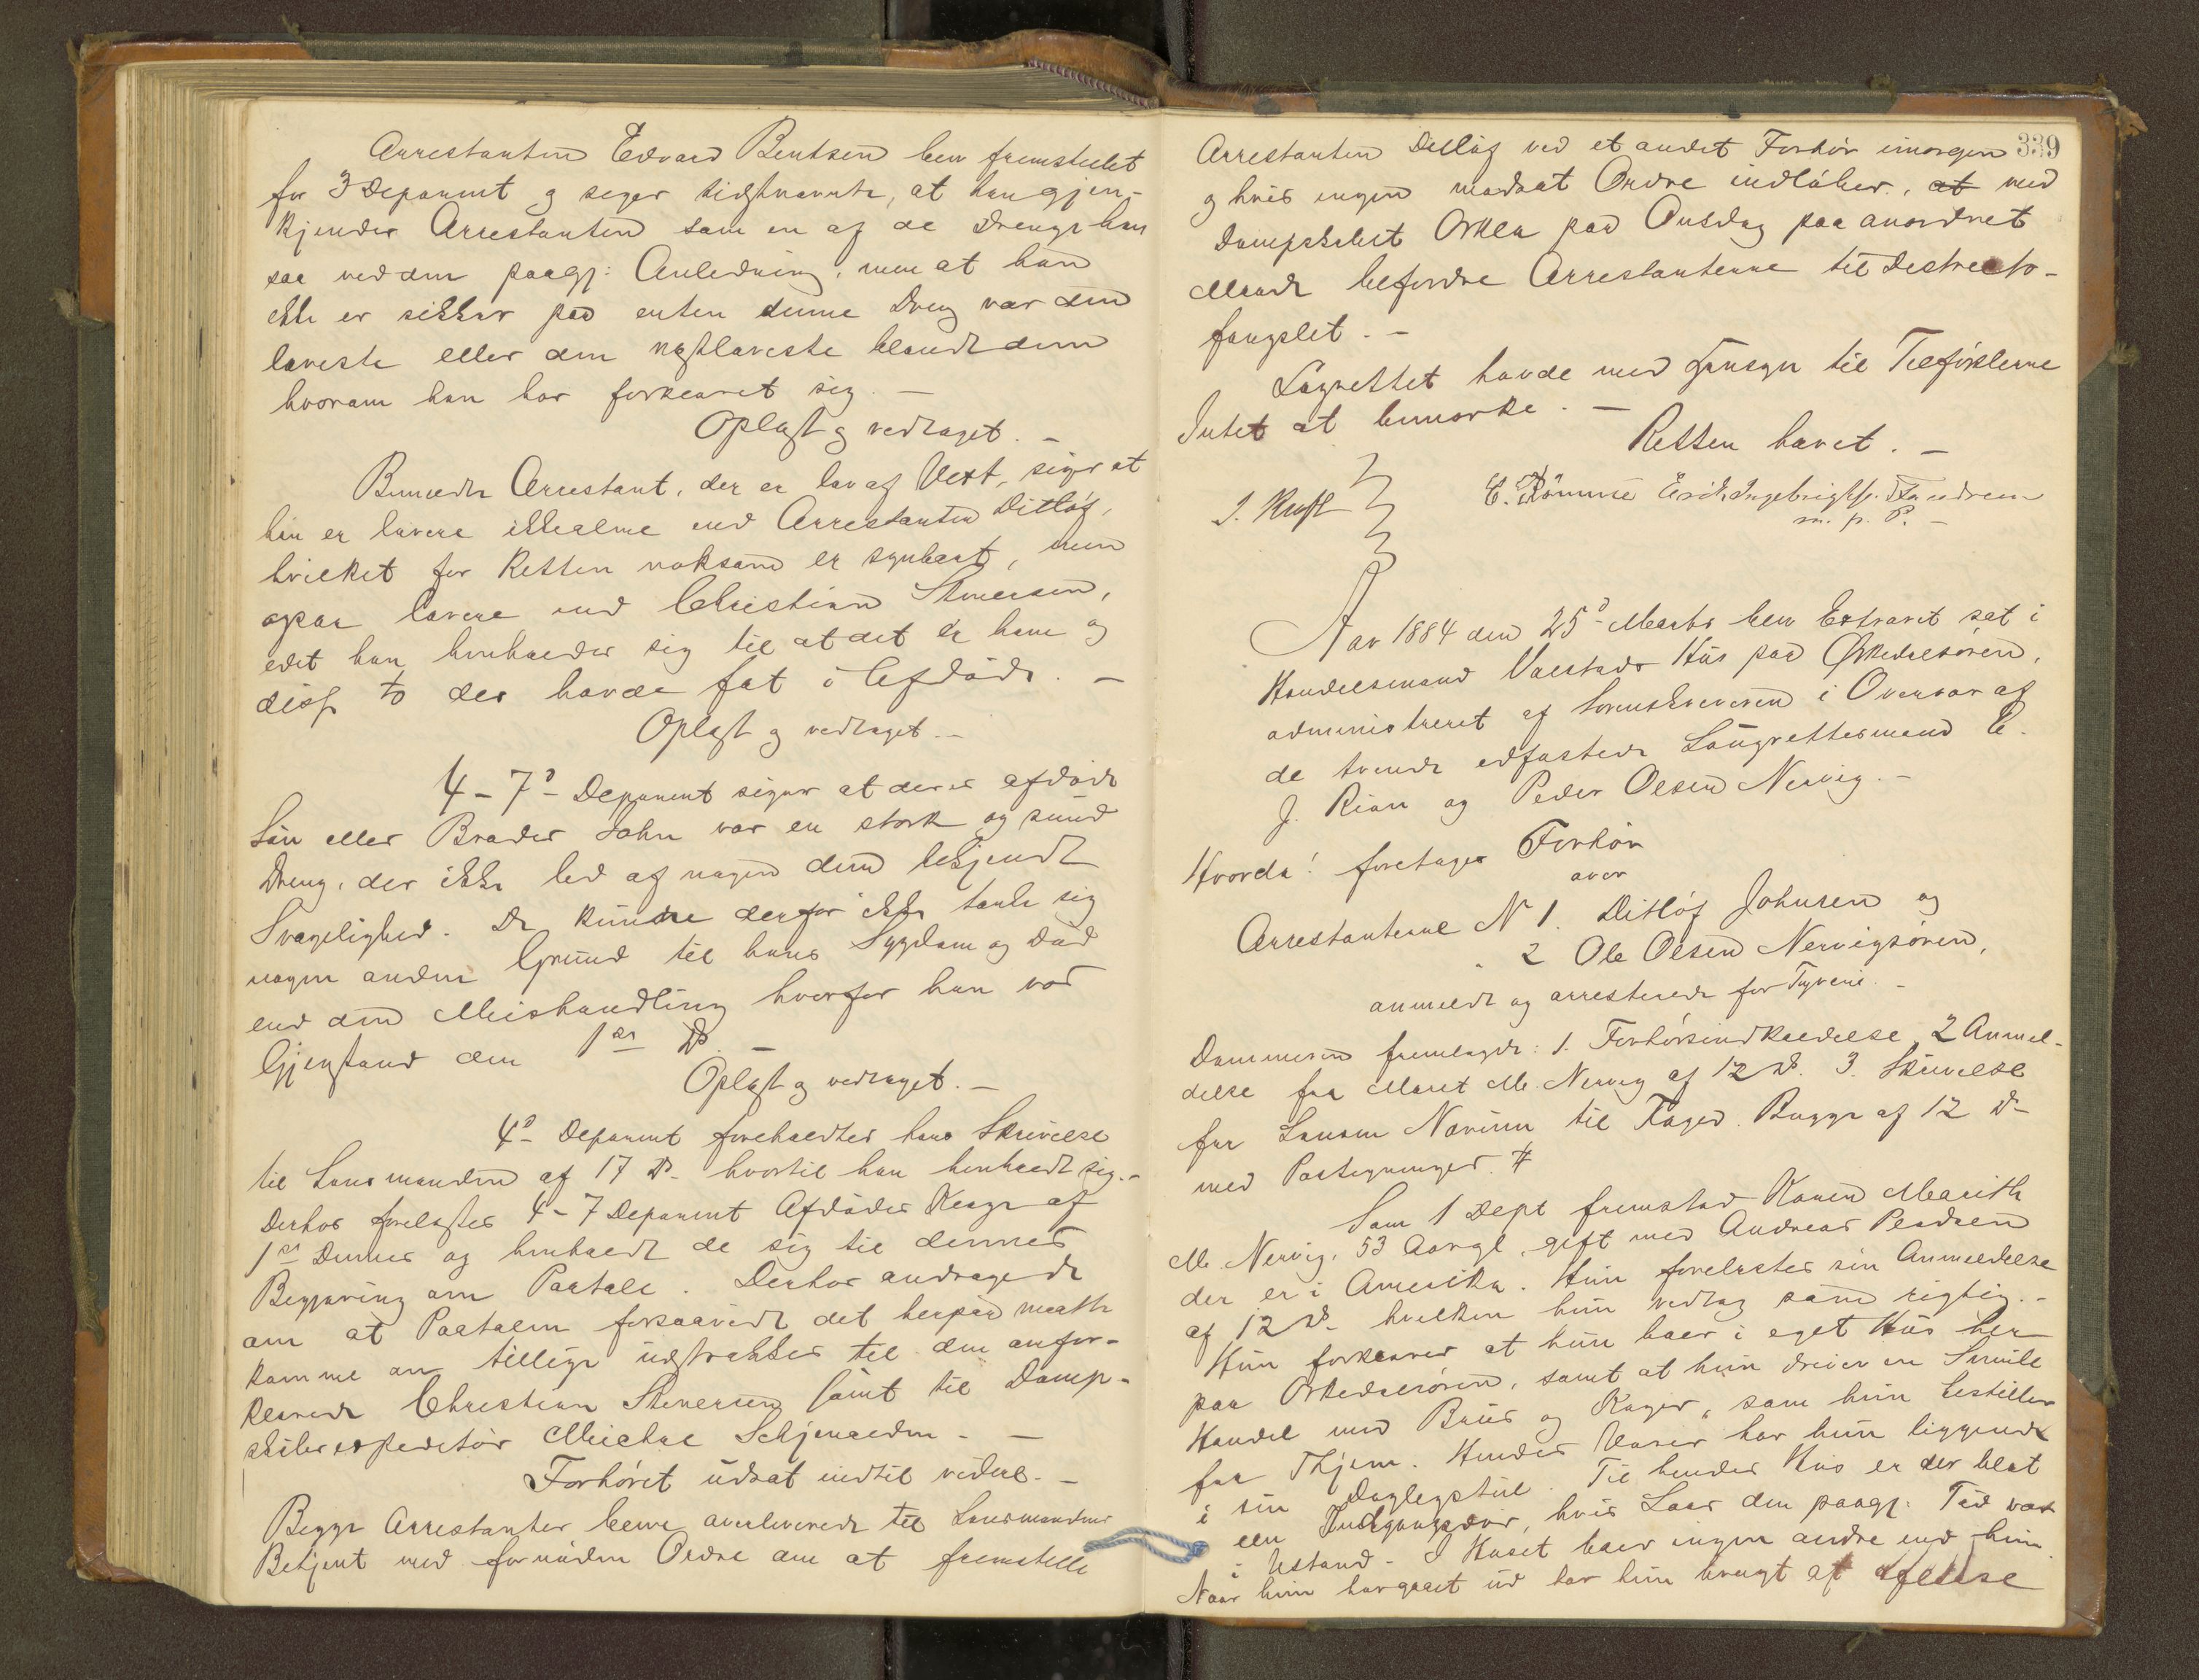 Arrestanten Edvard Bentsen blev fremstillet
for 3 Deponent og siger sidstnævnte, at han gjen-
kjender Arrestanten som en af de Drenge han
saa ved den paagj: Anledning, men at han
ikke er sikker paa enten denne Dreng var den
laveste eller den næstlaveste blandt dem
hvorom han har forklaret sig. –
Oplæst og vedtaget. –
Bemeldte Arrestant, der er lav af Vext, siger at
han er lavere ikkealene end Arrestanten Ditløf,
hvilket for Retten noksom er synbart, men
ogsaa lavere end Christian Stenersen,
idet han henholder sig til at det er ham og
disse to der havde fat i Afdøde. –
Oplæst og vedtaget. –
4 – 7d Deponent siger at deres afdøde
Søn eller Broder John var en stærk og sund
Dreng, der ikke led af nogen dem bekjendt
Svagelighed. De kunde derfor ikke tænke sig
nogen anden Grund til hans Sygdom og Død
end den Mishandling hvorfor han var
Gjenstand den 1ste Ds. –
Oplæst og vedtaget. –
4d Deponent foreholdtes hans Skrivelse
til Lensmanden af 17 Ds. hvortil han henholdt sig. –
Derhos forelæstes 4 – 7 Deponent Afdødes Klage af
1ste Dennes og henholdt de sig til dennes
Begjæring om Paatale. Derhos androge de
om at Paatalen forsaavidt det herpaa maatte
komme an tillige udstrækkes til den anfor-
klarede Christian Stenersen samt til Damp-
skibsexpeditør Michal Schjenaldern. –
Forhøret udsat indtil videre. –
Begge Arrestanter bleve overleverede til Lensmandens
Betjent med fornøden Ordre om at fremstille
339
Arrestanten Ditløf ved et andet Forhør imorgen
og hvis ingen modsat Ordre indløber, at med
Dampskibet Orkla paa Onsdag paa anordnet
Maade befordre Arrestanterne til Distrikts-
fængslet. –
Lagrettet havde med Hensyn til Tilførslerne
Intet at bemærke. –
Retten hævet. –
J. Krafft
E. Rømme Erik Ingebrigtss.
m. p. P. –
Aar 1884 den 25d Marts blev Extraret sat i
Handelsmand Vaestads Hus paa Ørkedalsøren,
administreret af Sorenskriveren i Overvær af
de tvende edfæstede Laugrettesmænd E.
J. Rian og Peder Olsen Nervig. –
Hvorda! foretages Forhør
over
Arrestanterne No 1. Ditløf Johnsen og
" 2 Ole Olsen Nervigsøren,
anmeldt og arresterede for Tyveri. –
Dommeren fremlagde: 1. Forhørsindkaldelse, 2 Anmel-
delse fra Maret M. Nervig af 12 Ds. 3. Skrivelse
fra Lensm Navinn til Foged. Bugge af 12 Ds
med Paategninger. #
Som 1 Dept fremstod Konen Marith
M. Nervig, 53 Aargl, gift med Andreas Pedersen
der er i Amerika. Hun forelæstes sin Anmeldelse
af 12 Ds. hvilken hun vedtog som rigtig. –
Hun forklarer at hun boer i eget Hus her
paa Orkedalsøren, samt at hun driver en Smule
Handel med Brus og Kager, som hun bestiller
fra Thjem. Hendes Varer har hun liggende
i sin Daglegstue. Til hendes Hus er der blot
een Indgangsdør, hvis Laas den paagj. Tid var
i Ustand. – I Huset boer ingen andre end hun
Naar hun har gaaet ud har hun brugt at aflaase